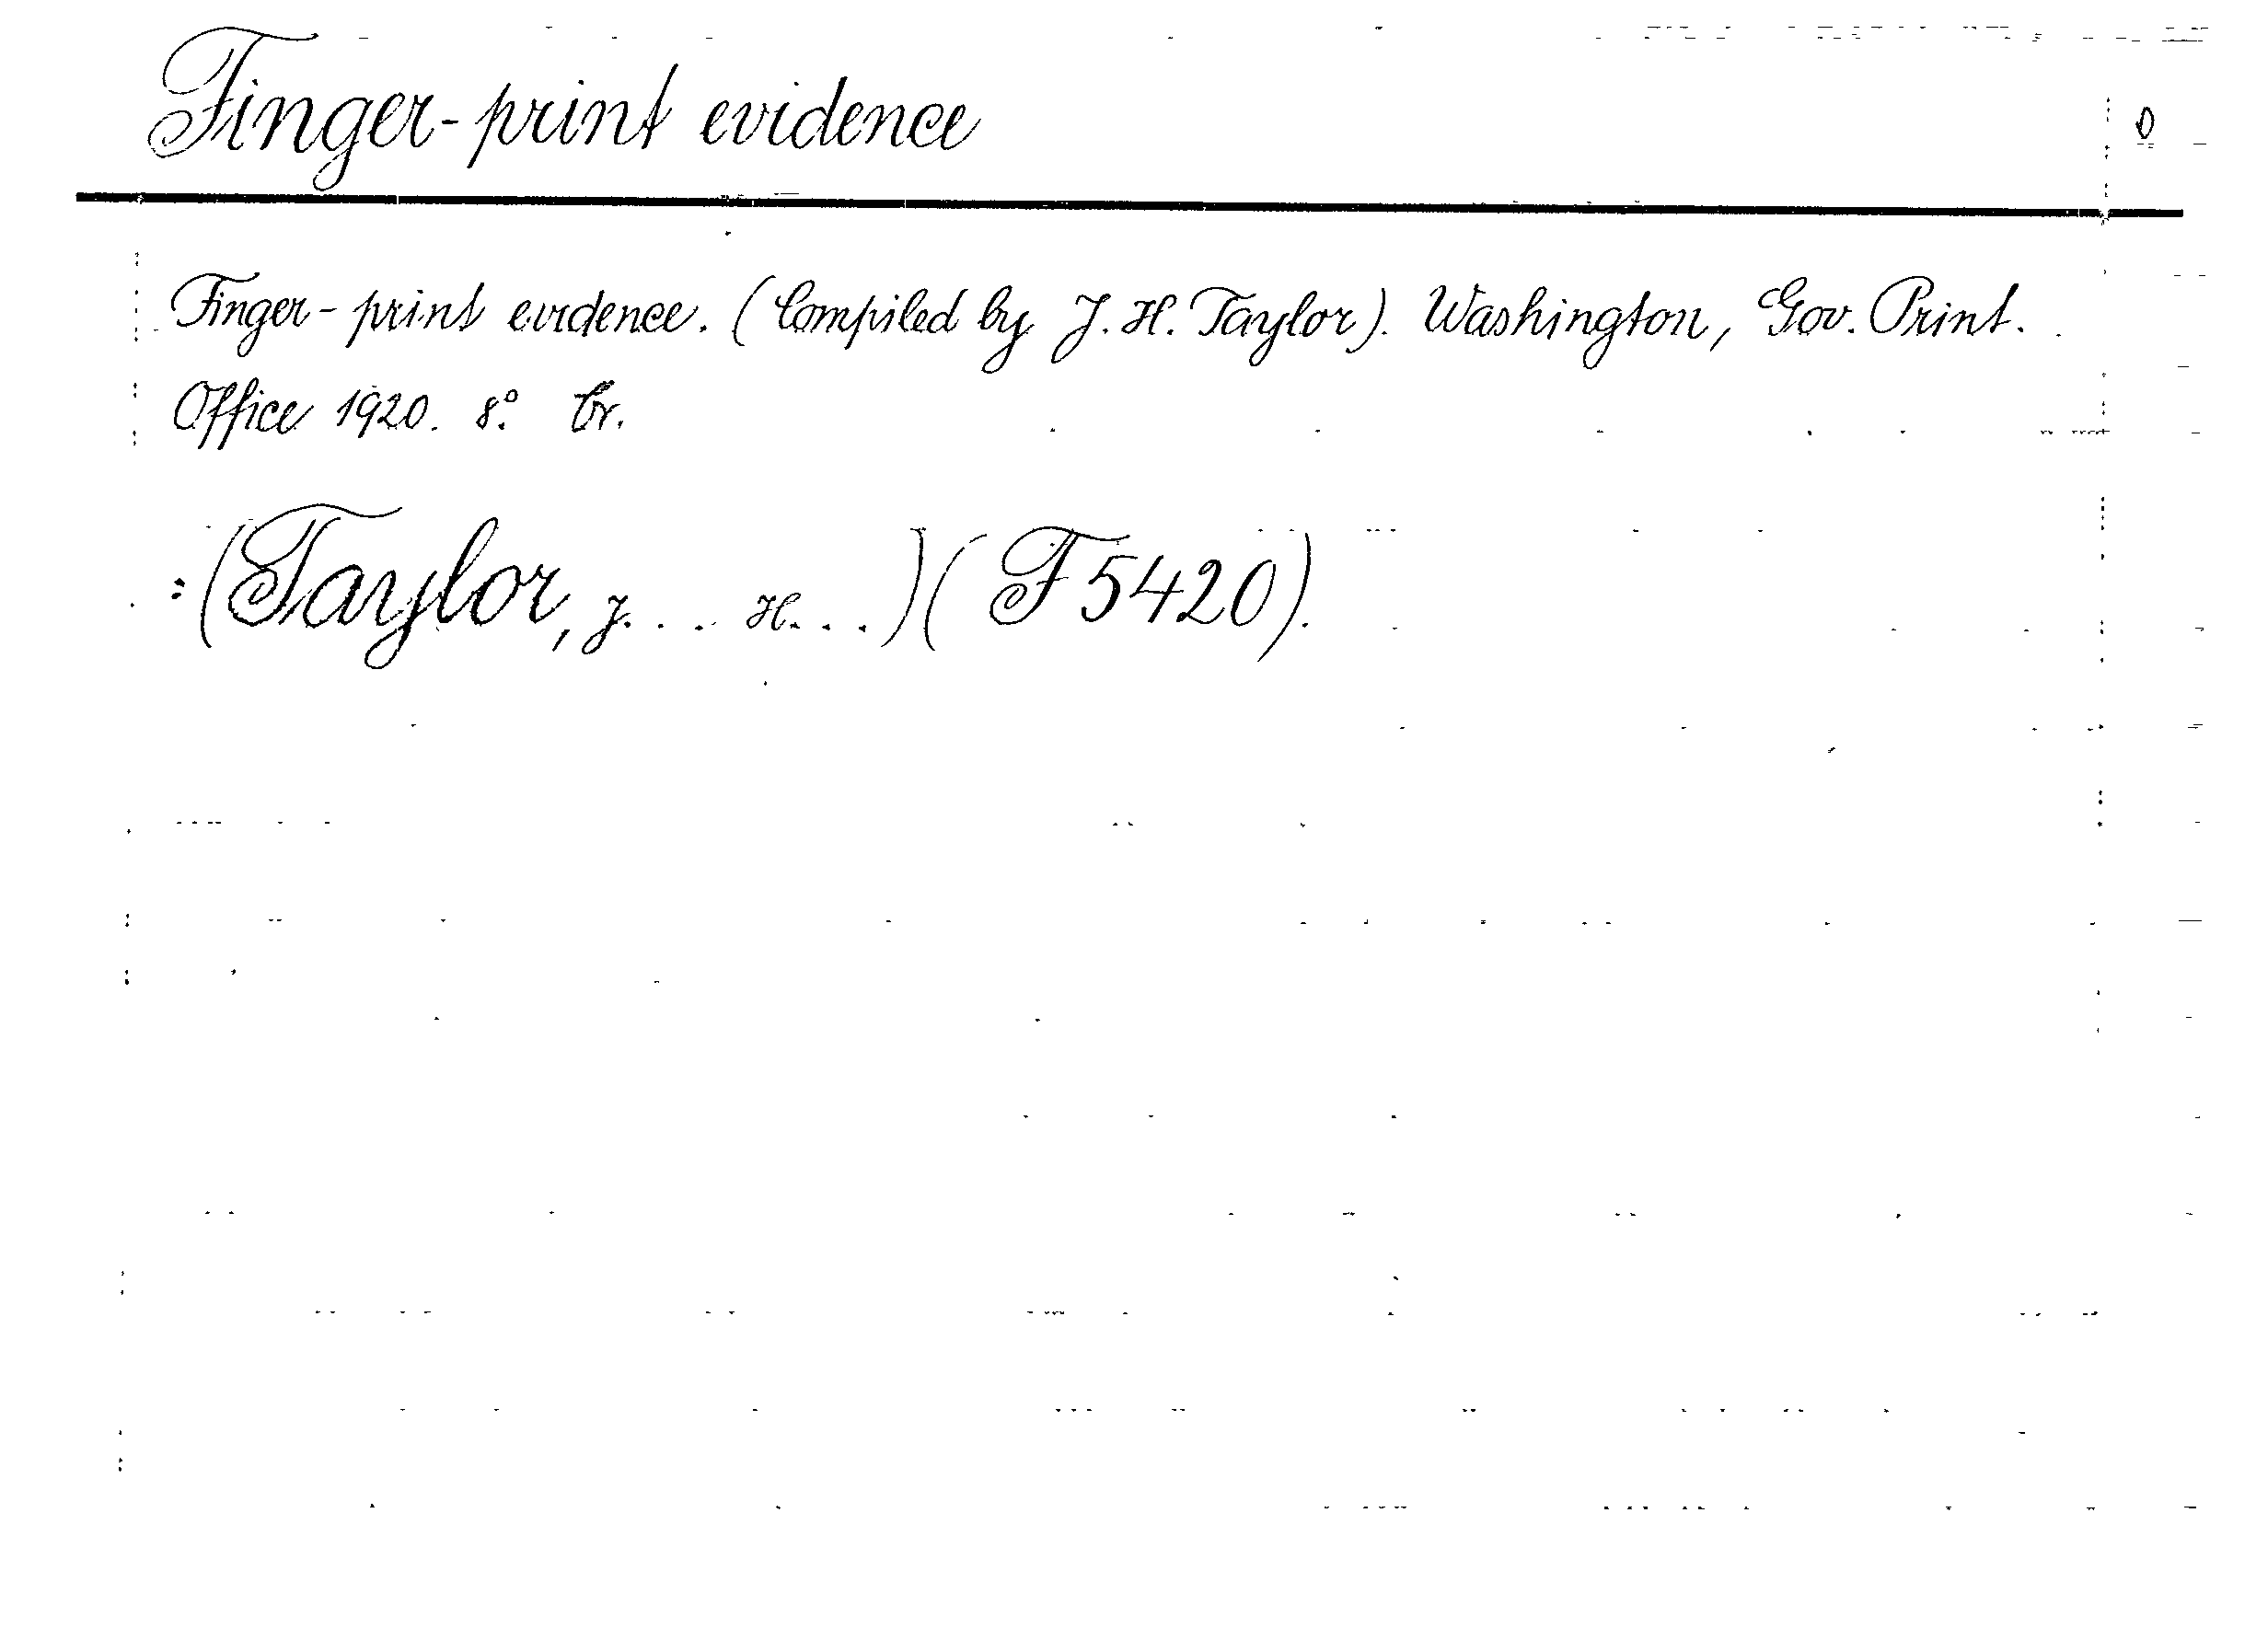 Finger-print evidence
Finger-print evidence. (Compiled by J. H. Taylor). Washington, Gov. Print.
Office 1920. 8° br.
:(Taylor, J. . . . H. . . .)(F5420).